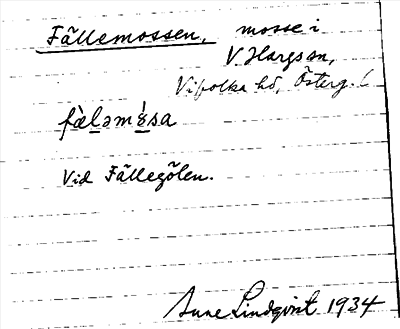 Fällemossen, mosse i
V Hargs sn,
Vifolka hd, Österg. l
fäləmósa
Vid Fällegölen.
Sune Lindqvist 1934